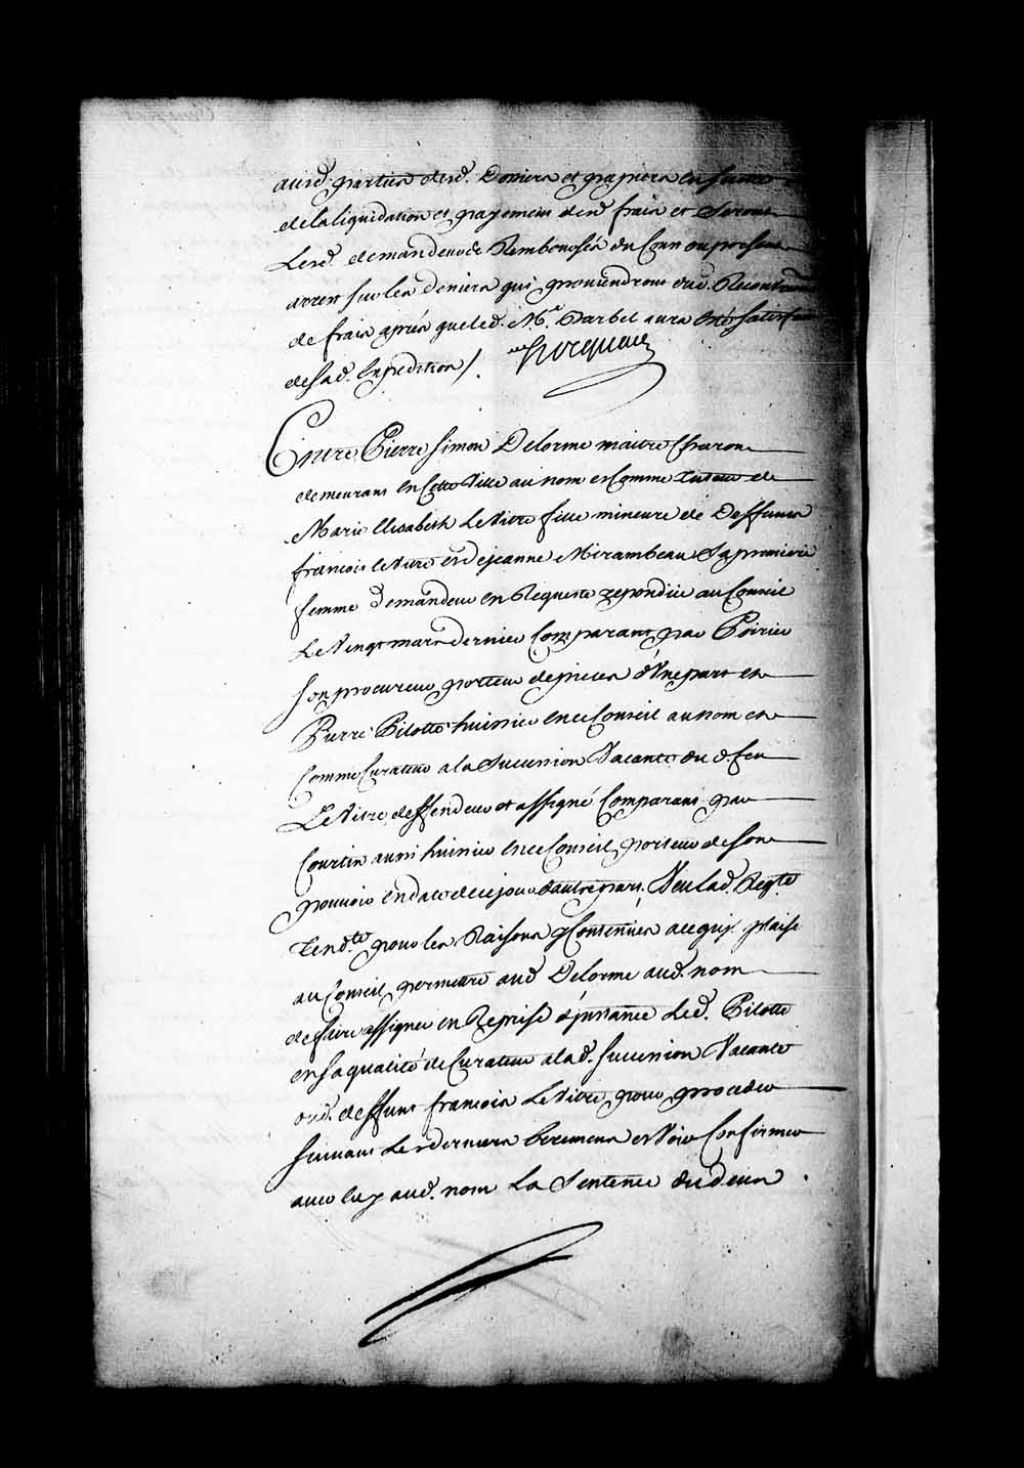 ausd. parties desd. Deniers et papiers en
de la liquidation et payement desd. frais et Seront
Lesd. demandeurs Remboursés du Cout du present
arrest sur les deniers qui proviendront dud. Recouvrement
de frais aprés que led. Me. Barbel aura été satisfait
de Sad. Expedition /. hocquart
Entre Pierre Simon Delorme maitre Charon
demeurant en Cette Ville au nom et Comme Tuteur de
Marie Elisabeth LeVitre fille mineure de Deffunts
francois leVitre et de jeanne Mirambeau Sa premiere
femme Demandeur en Requeste repondüe au Conseil
Le Vingt mars dernier Comparant par Poirier
son procureur porteur de pieces d'Une part et
Pierre Pilotte huissier en ce Conseil au nom et
Comme Curateur a la Succession Vacante du d. feu
LeVitre deffendeur et assigné Comparant par
Courtin aussi huissier en ce Conseil porteur de Son
pouvoir en date de ce jour d'autre part. Veu lad. Reqte.
tendte. pour les Raisons y Contenües a ce qu'il plaise
au Conseil permettre aud. Delorme aud. nom
de faire assigner en Reprise d'jnstance Led. Pilotte
en Sa qualité de Curateur a lad. Succession Vacante
dud. deffunt francois LeVitre pour proceder
Suivant Les derniers Erremens et Voir Confirmer
avec luy aud. nom La Sentence du deux